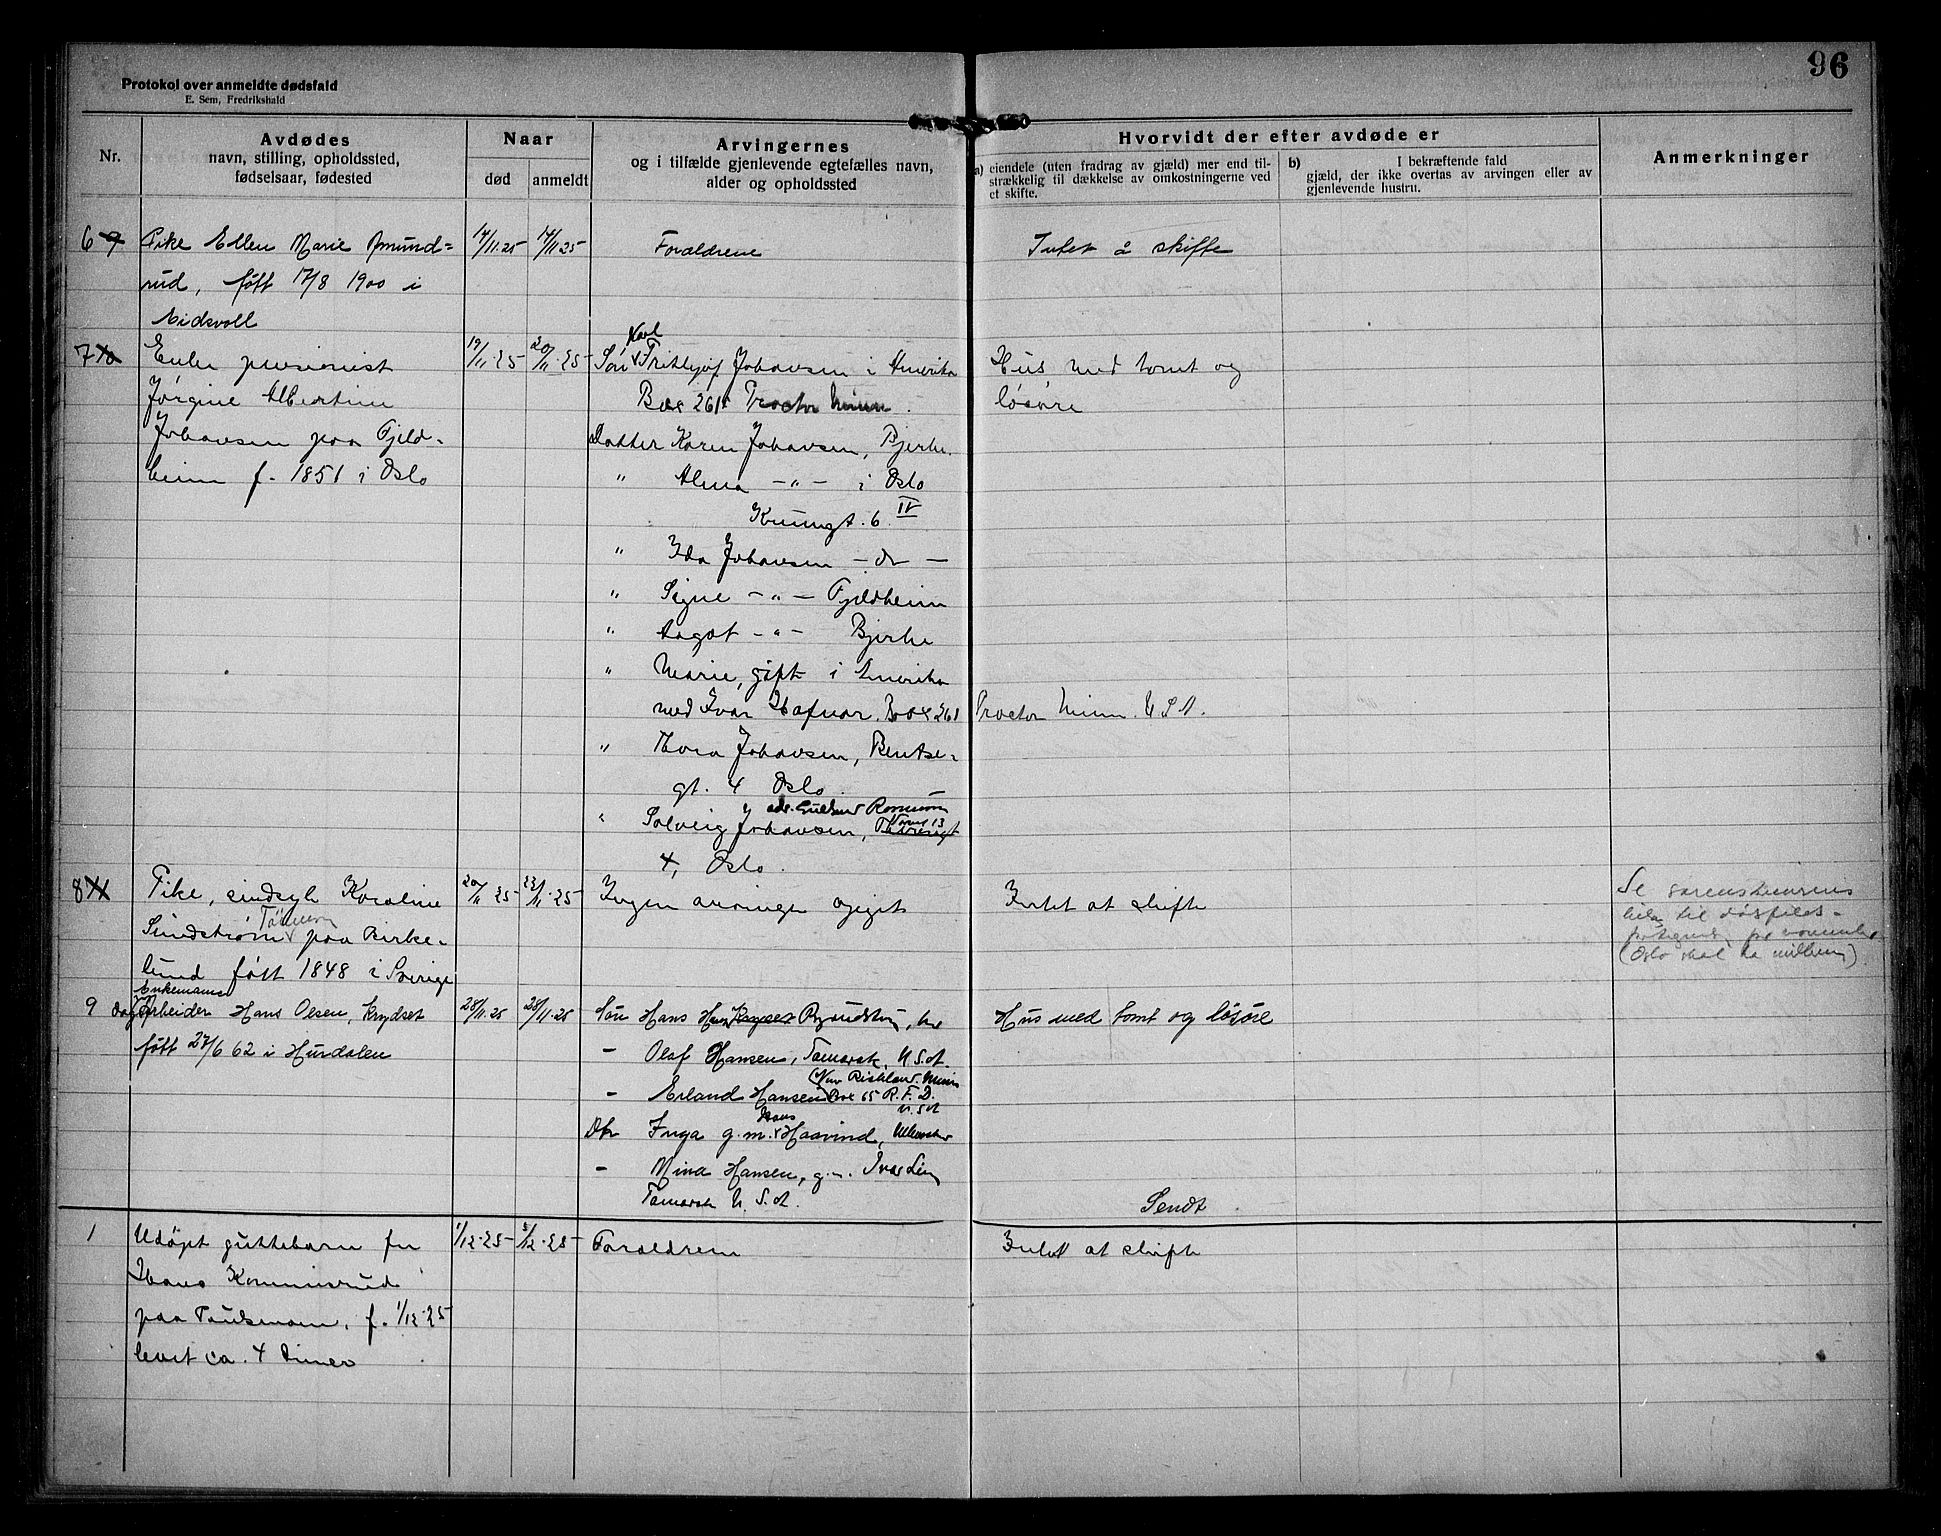 96
Protokol over anmeldte dødsfald
E. Sem, Fredrikshald
Nr.
Avdødes
navn, stilling, opholdssted,
fødselsaar, fødested
Naar
død
anmeldt
Arvingernes
og i tilfælde gjenlevende egtefælles navn,
alder og opholdssted
Hvorvidt der efter avdøde er
a) eiendele (uten fradrag av gjæld) mer end til-
strækkelig til dækkelse av omkostningerne ved
et skifte.
b) I bekræftende fald
gjæld, der ikke overtas av arvingen eller av
gjenlevende hustru.
Anmerkninger
6 9 Pike Ellen Marie Amund=
rud, født 17/8 1900 i
Eidsvoll
14/11.25
14/11 25
Foreldrene
Intet å skifte
7 10 Enke pensionist
Jørgine Albertine
Johansen paa Fjeld-
heim f. 1851 i Oslo
19/11.25
20/11.25
Karl
Søn Frithjof Johansen i Amerika
Box 261 Proctor Minn.
Datter Karen Johansen, Bjerke.
" Alma - " - i Oslo
6 IV
" Ida Johansen - do -
" Signe - " - Fjeldheim
" Aagot - " - Bjerke
" Marie, gift i Amerika
med Ivar Hafnor. Box 261 Proctor Minn. U S A.
" Thora Johansen, Bentse-
gt. 4 Oslo.
" Solveig Johansen,
4, Oslo.
Hus med tomt og
løsøre
8 11 Pike, sindsyk Karoline
Sundstrøm paa Birke-
lund født 1848 i Sverige
20/11 25
Ingen arvinger opgit
Intet at skifte
Se
til
(Oslo skal ha
9 Enkemand
Arbeider Hans Olsen, krydset
født 27/6 62 i Hurdalen
28/11.25
28/11.25
Søn Hans
- Olaf Hansen, Tamarack, U.S.A.
Minn
- Erland Hansen Box 65 R.F.D.
U.S.A
Hans
Dtr Inga g.m. Haavind,
- Mina Hansen, g.m. Ivar Lien
Tamarack U.S.A.
Hus med tomt og løsøre
Sendt
1 Udøpt guttebarn for
Hans Kommisrud
paa Paulsmoen, f. 1/12-25
levet ca. 4 timer
1/12-25
5/12-25
Foreldrene
Intet at skifte